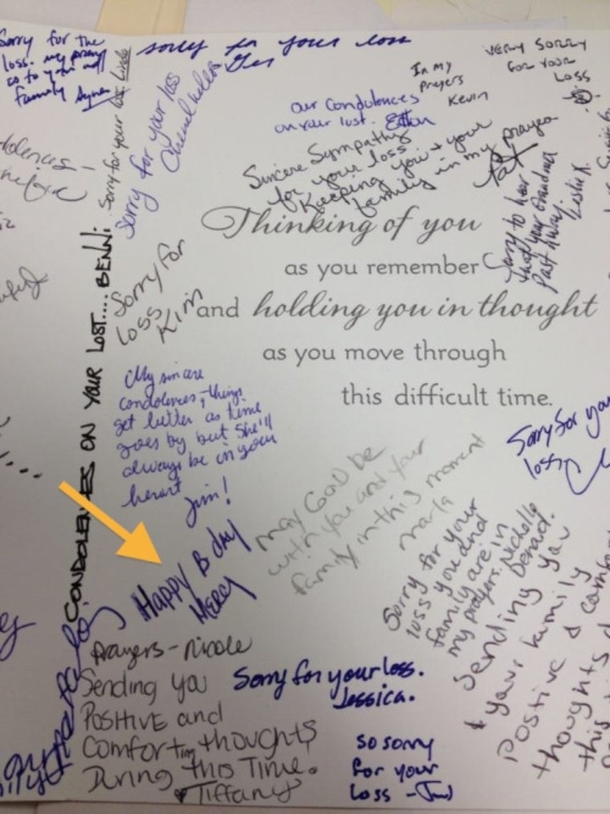 Sorry for the
loss. my prayers
go to you and
family
sorry for your loss
VERY SORRY
FOR YOUR
LOSS
In my
prayers
Kevin
our Condolences
on your lost.
Sorry for your loss
Sorry for your loss
Sincere Sympathy
for your loss
Keeping you + your
family in my prayers
Pat
Sorry to hear
that your Grandma
Past Away.
CONDOLENCES ON YOUR LOST.... BENNI
Thinking of you
as you remember
and holding you in thought
as you move through
this difficult time.
Sorry for
loss
Kim
My sincere
condolences, things
get better as time
goes by but She'll
always be in your
heart
Jim!
Sorry for you
loss
May God be
with you and your
family in this moment
Maria
Happy B day
Mercy
Sorry for your
loss you and
family are in
my prayers.
Sending you
& your family
Positive &
thoughts
this
Prayers - Nicole
Sending you
Positive and
Comforting thoughts
During this Time.
Tiffany
Sorry for your loss.
Jessica.
so sorry
for your
loss